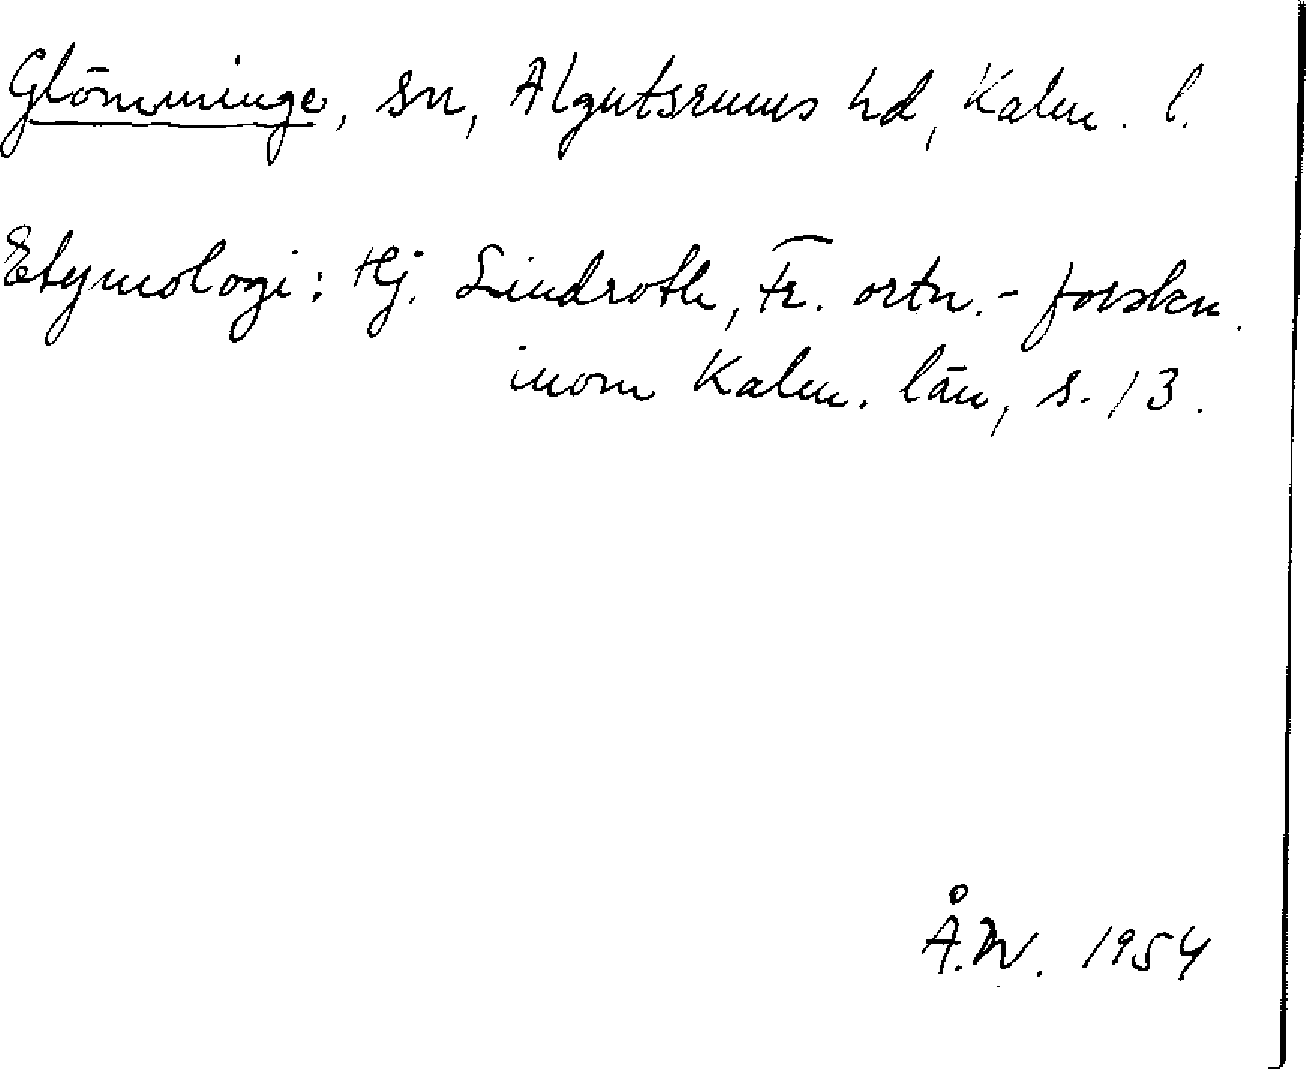 Glömminge, sn, Algutsrums hd, Kalm. l.
Etymologi: Hj. Lindroth, Fr. ortn.-forskn.
inom Kalm. län, s. 13.
Å.W. 1954